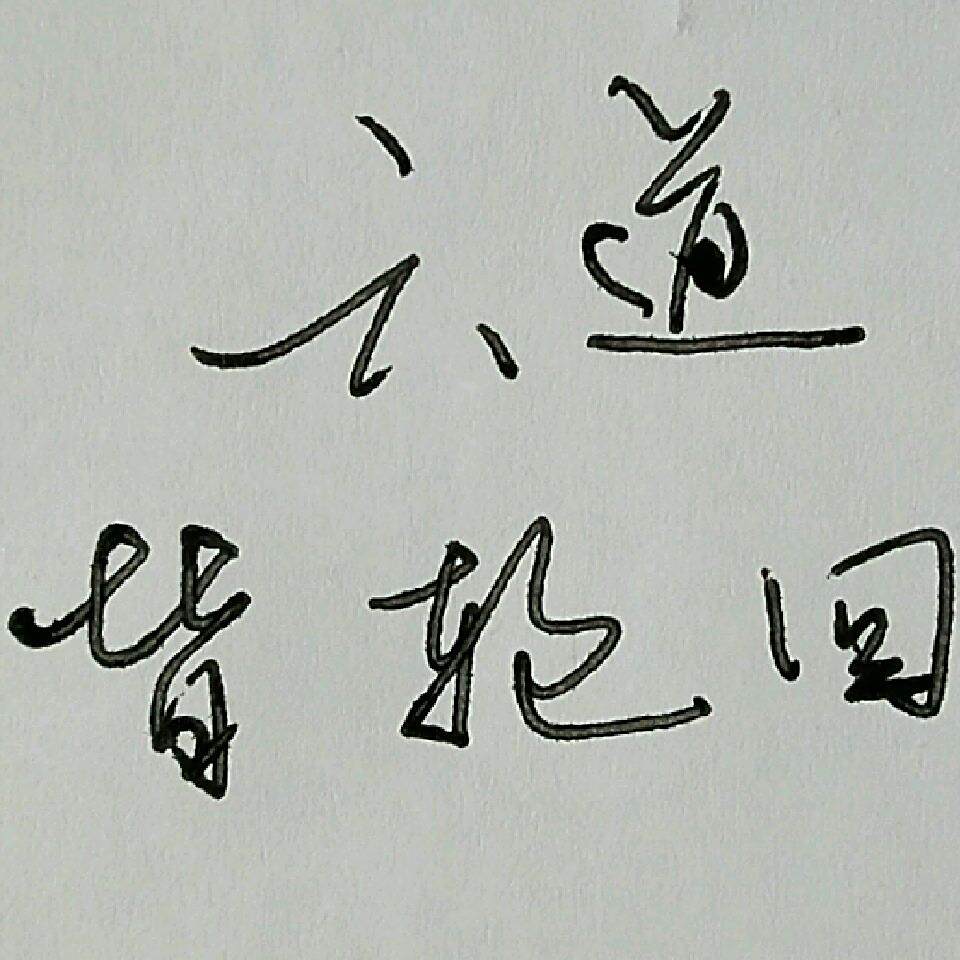 六道
皆轮回